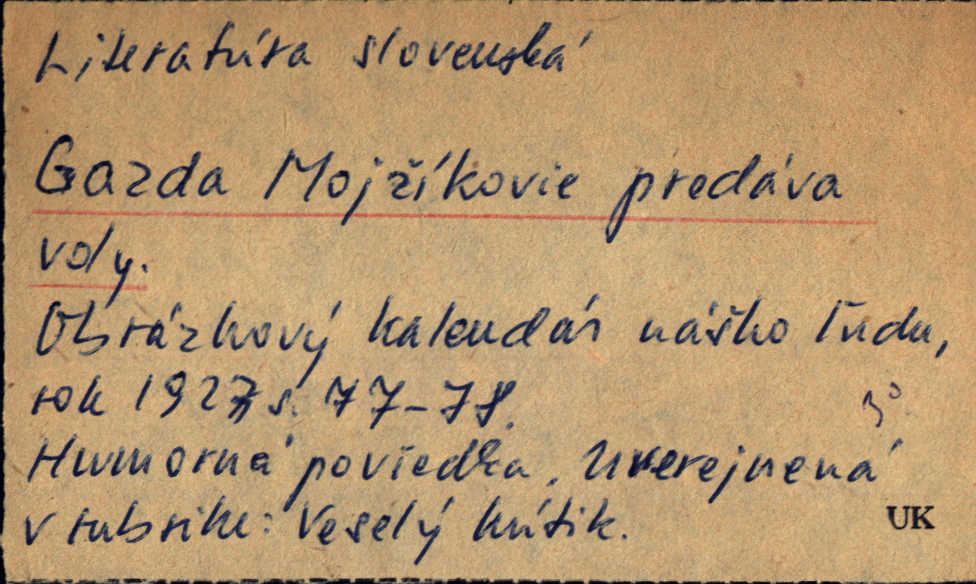 Literatúra slovenská
Gazda Mojžíkovie predáva
voly.
Obrázkový kalendár nášho ľudu,
rok 1927, s. 77-78.
Humorná poviedka. Uverejnená
v rubrike: Veselý kútik.
UK